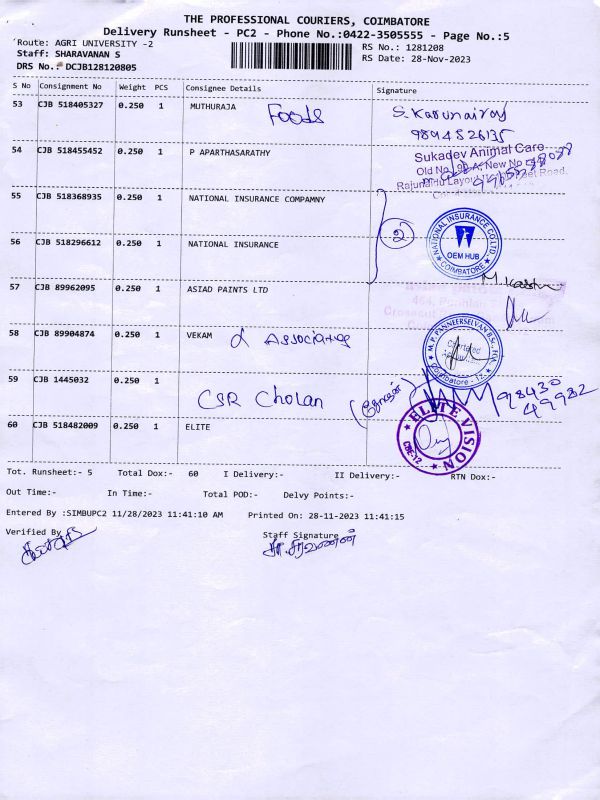 THE PROFESSIONAL COURIERS, COIMBATORE
Delivery Runsheet - PC2 - Phone No.:0422-3505555 - Page No.:5
Route: AGRI UNIVERSITY -2
RS No.: 1281208
Staff: SHARAVANAN S
RS Date: 28-Nov-2023
DRS No.: DCJB128120805
S No Consignment No Weight PCS Consignee Details Signature
53 CJB 518405327 0.250 1 MUTHURAJA Foods
9894526135
54 CJB 518455452 0.250 1 P APARTHASARATHY
Sukadev Animal Care
Old No. New No
55 CJB 518368935 0.250 1 NATIONAL INSURANCE COMPAMNY
2
NATIONAL INSURANCE CO LTD
OEM HUB
COIMBATORE
56 CJB 518296612 0.250 1 NATIONAL INSURANCE
57 CJB 89962095 0.250 1 ASIAD PAINTS LTD
58 CJB 89904874 0.250 1 VEKAM & Associates
M.P. PANNEERSELVAN B.Sc., FCA
Chartered
Coimbatore - 12
59 CJB 1445032 0.250 1
CSR Cholan
98430
49982
60 CJB 518482009 0.250 1 ELITE
ELITE VISION
CBE-12
Tot. Runsheet:- 5 Total Dox:- 60 I Delivery:- II Delivery:- RTN Dox:-
Out Time:- In Time:- Total POD:- Delvy Points:-
Entered By :SIMBUPC2 11/28/2023 11:41:10 AM Printed On: 28-11-2023 11:41:15
Verified By
Staff Signature